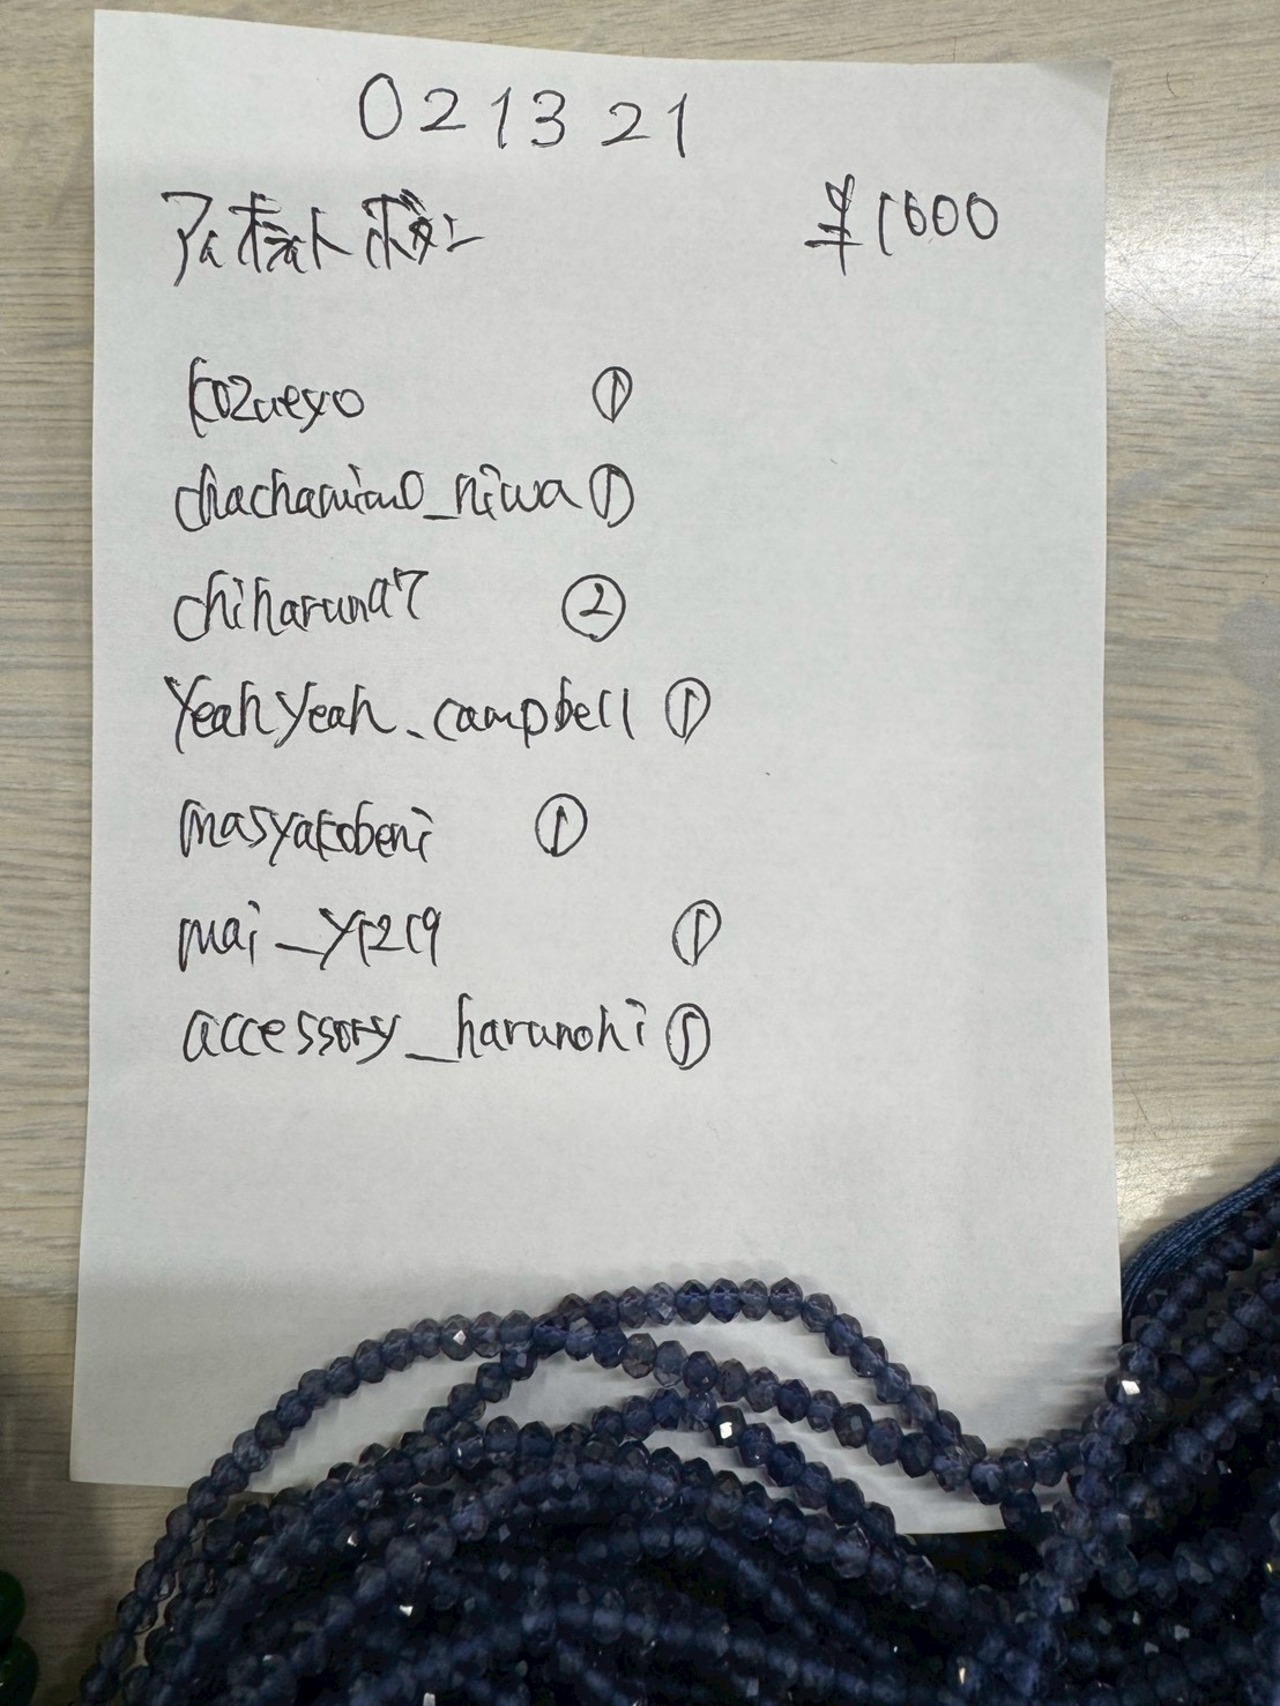 021321
アイオライトボタン
¥1600
kozueyo ①
chachamimo_niwa ①
chiharuna7 ②
yeahyeah_campbell ①
masyakobeni ①
mai_y1219 ①
accessory_harunohi ①